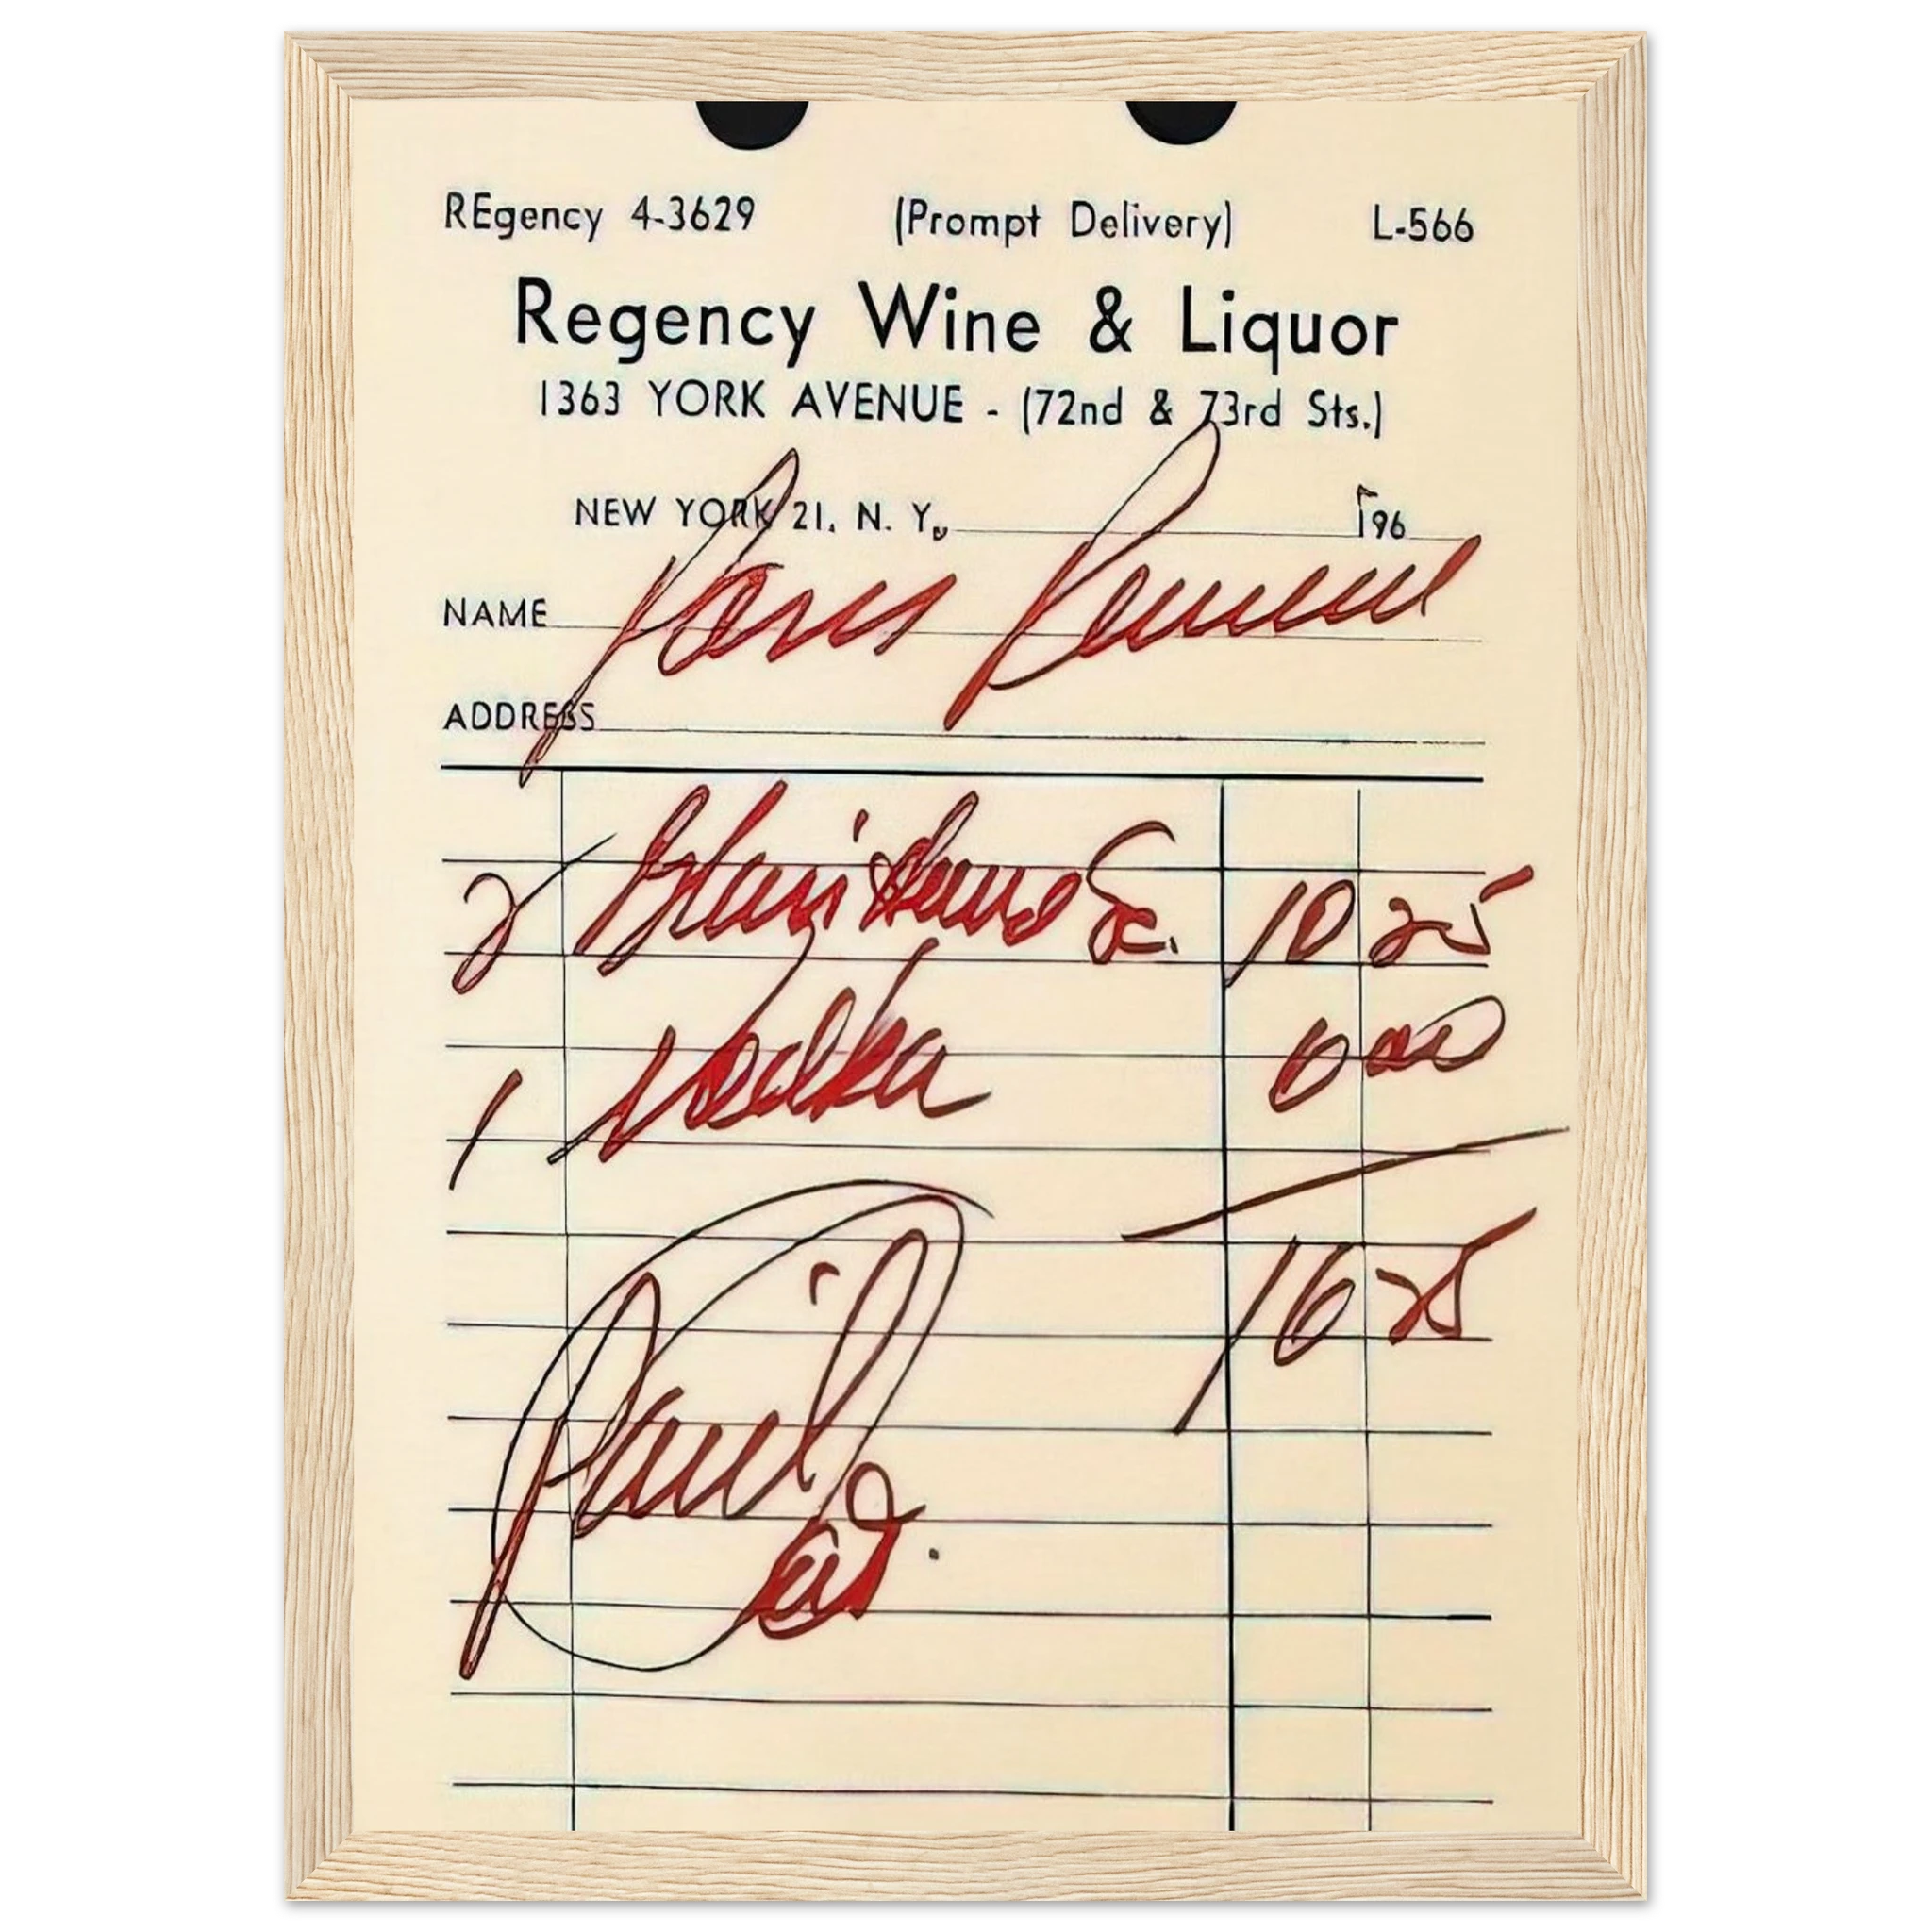 REgency 4-3629 (Prompt Delivery) L-566
Regency Wine & Liquor
1363 YORK AVENUE - (72nd & 73rd Sts.)
NEW YORK 21, N. Y., 196
NAME
ADDRESS
2 10 25
1 Vodka 6 00
16 25
Paid